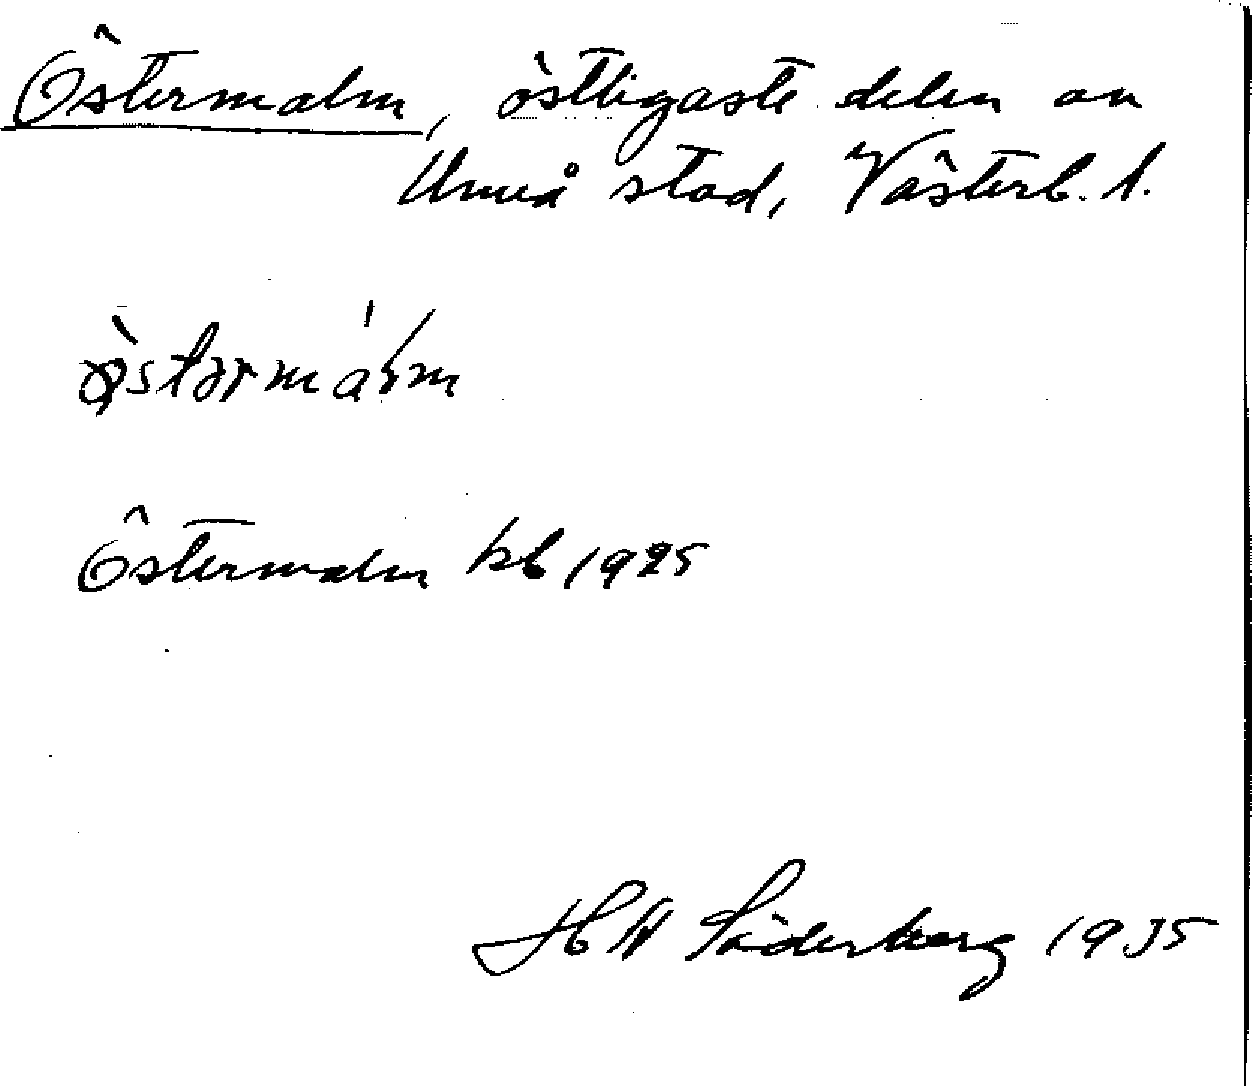 Östermalm, östligaste delen av
Umeå stad, Västerb. l.
Östermalm kb 1925
HW Söderberg 1935